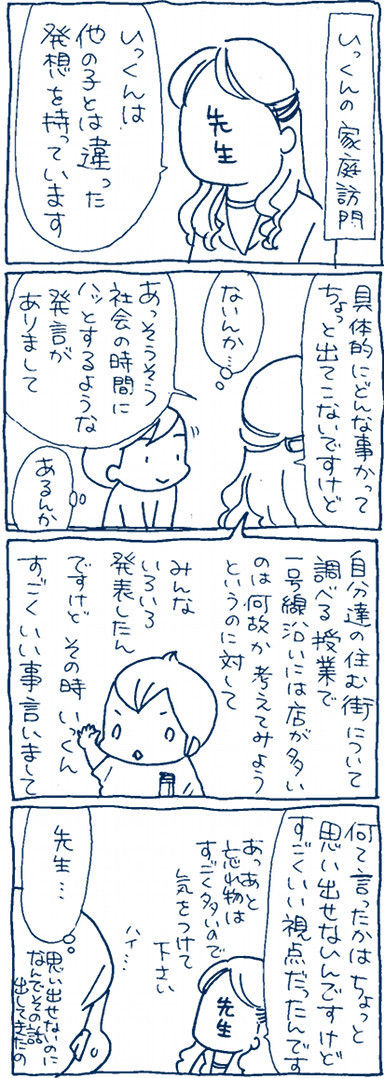 いっくんの家庭訪問
先生
いっくんは
他の子とは違った
発想を持っています
具体的にどんな事かって
ちょっと出てこないですけど
ないんか…
あっそうそう
社会の時間に
ハッとするような
発言が
ありまして
あるんか
自分達の住む街について
調べる授業で
一号線沿いには店が多い
のは何故か考えてみよう
というのに対して
みんな
いろいろ
発表したん
ですけど その時いっくん
すごくいい事言いまして
何て言ったかはちょっと
思い出せないんですけど
すごくいい視点だったんです
先生
あっあと
忘れ物は
すごく多いので
気をつけて
下さい
ハイ…
先生…
思い出せないのに
なんでその話
出してきたの